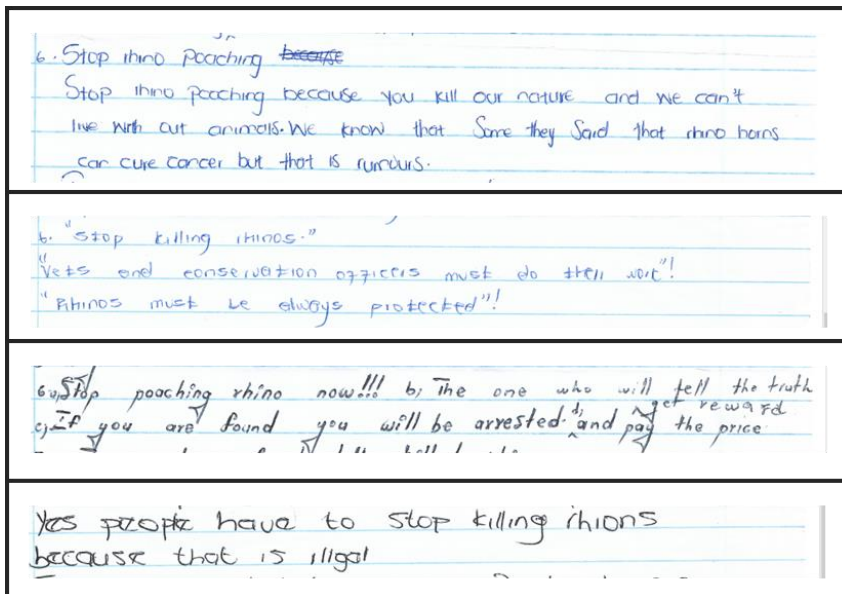 6. Stop rhino poaching because
Stop rhino poaching because you kill our nature and we can't
live with out animals. We know that Some they Said that rhino horns
can cure cancer but that is rumours.
6. "Stop killing rhinos."
"Vets and conservation officers must do their work"!
"Rhinos must be always protected"!
6a, Stop poaching rhino now!!! b, The one who will tell the truth
get reward
c, If you are found you will be arrested. d, and pay the price
Yes people have to stop killing rhions
because that is illgal